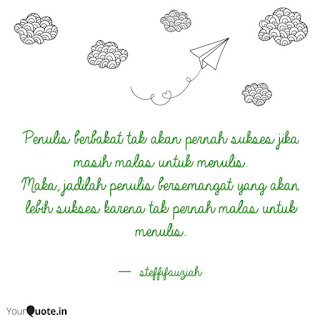 Penulis berbakat tak akan pernah sukses jika
masih malas untuk menulis.
Maka, jadilah penulis bersemangat yang akan
lebih sukses karena tak pernah malas untuk
menulis.
— steffifauziah
YourQuote.in